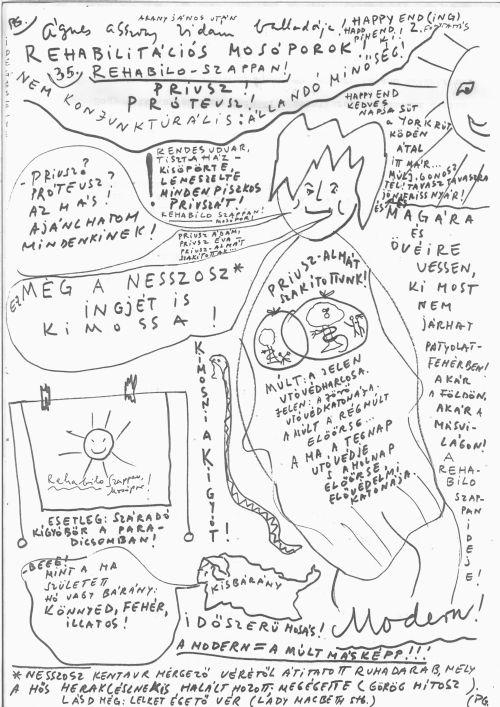 PG.
ARANY JÁNOS UTÁN
Ágnes asszony vidám balladája!
HAPPY END(ING)
HAPPY PIHEND!
2. FOGTATÁS
REHABILITÁCIÓS MOSÓPOROK!
35. REHABILO-SZAPPAN!
PRIUSZ!
PRÓTEUSZ!
NEM KONJUNKTURÁLIS: ÁLLANDÓ MINŐSÉG!
HAPPY END
KEDVES
NAPJA SÜT
A YORK RÚT
KÖDÉN
ÁTAL
ITT MÁR...
MÚLJ, GONOSZ
TÉL! TAVASZ TAVASZRA
JÖN ÉS
- PRIUSZ?
PRÓTEUSZ?
AZ HA'S!
AJÁNLHATOM
MINDENKINEK!
! RENDES UDVAR,
TISZTA HÁZ -
KISÖPÖRTE,
LEMESZELTE
MINDEN PISZKOS
PRIUSZÁT!
REHABILO SZAPPAN!
MOSÓPOR!
PRIUSZ ÁDÁM,
PRIUSZ ÉVA
PRIUSZ-ALMÁT
SZAKÍTOTTAK...
MÉG A NESSZOSZ*
INGJÉT IS
KIMOSSA!
ÉS MAGÁRA
ÉS
ÖVÉIRE
VESSEN,
KI MOST
NEM
JÁRHAT
PATYOLAT-
FEHÉRBEN!
AKÁR
A FÖLDÖN,
AKÁR A
MÁSVI-
LÁGON!
A
REHA-
BILO
SZAP-
PAN IDEJE!
PRIUSZ-ALMÁT
SZAKÍTOTTUNK!
MÚLT: A JELEN
UTÓVÉDHARCOSA.
JELEN: A JÖVŐ
UTÓVÉDKATONÁJA.
A MÚLT A RÉGMÚLT
ELŐŐRSE...
A MA A TEGNAP
UTÓVÉDJE
S A HOLNAP
ELŐŐRSE,
ELŐVÉDELMI
KATONÁJA.
KIMOSNI A KÍGYÓT!
Rehabilo Szappan
ESETLEG: SZÁRADÓ
KÍGYÓBŐR A PARA-
DICSOMBAN!
- BEEE!
MINT A MA
SZÜLETETT
HÓ VAGY BÁRÁNY:
KÖNNYED, FEHÉR,
ILLATOS!
KISBÁRÁNY
IDŐSZERŰ
Modern!
A MODERN = A MÚLT MÁSKÉPP!!!
* NESSZOSZ KENTAUR MÉRGEZŐ VÉRÉTŐL ÁTITATOTT RUHADARAB, MELY
A HŐS HERAKLÉSZNEK IS HALÁLT HOZOTT. MEGÉGETTE (GÖRÖG MÍTOSZ).
LÁSD MÉG: LELKET ÉGETŐ VÉR (LADY MACBETH STB.)
(PG.